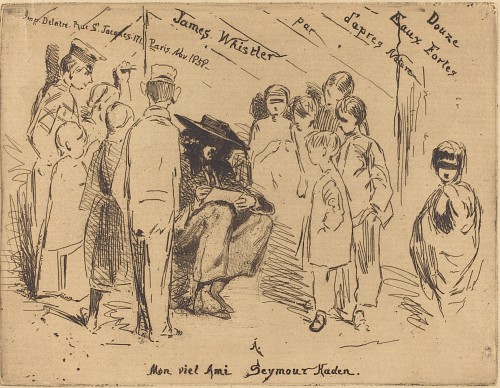 Imp. Delatre. Rue St. Jacques. 171.
Paris. Nov 1858.
James Whistler
par
d'apres Nature
Eaux Fortes
Douze
A.
Mon viel Ami Seymour Haden.